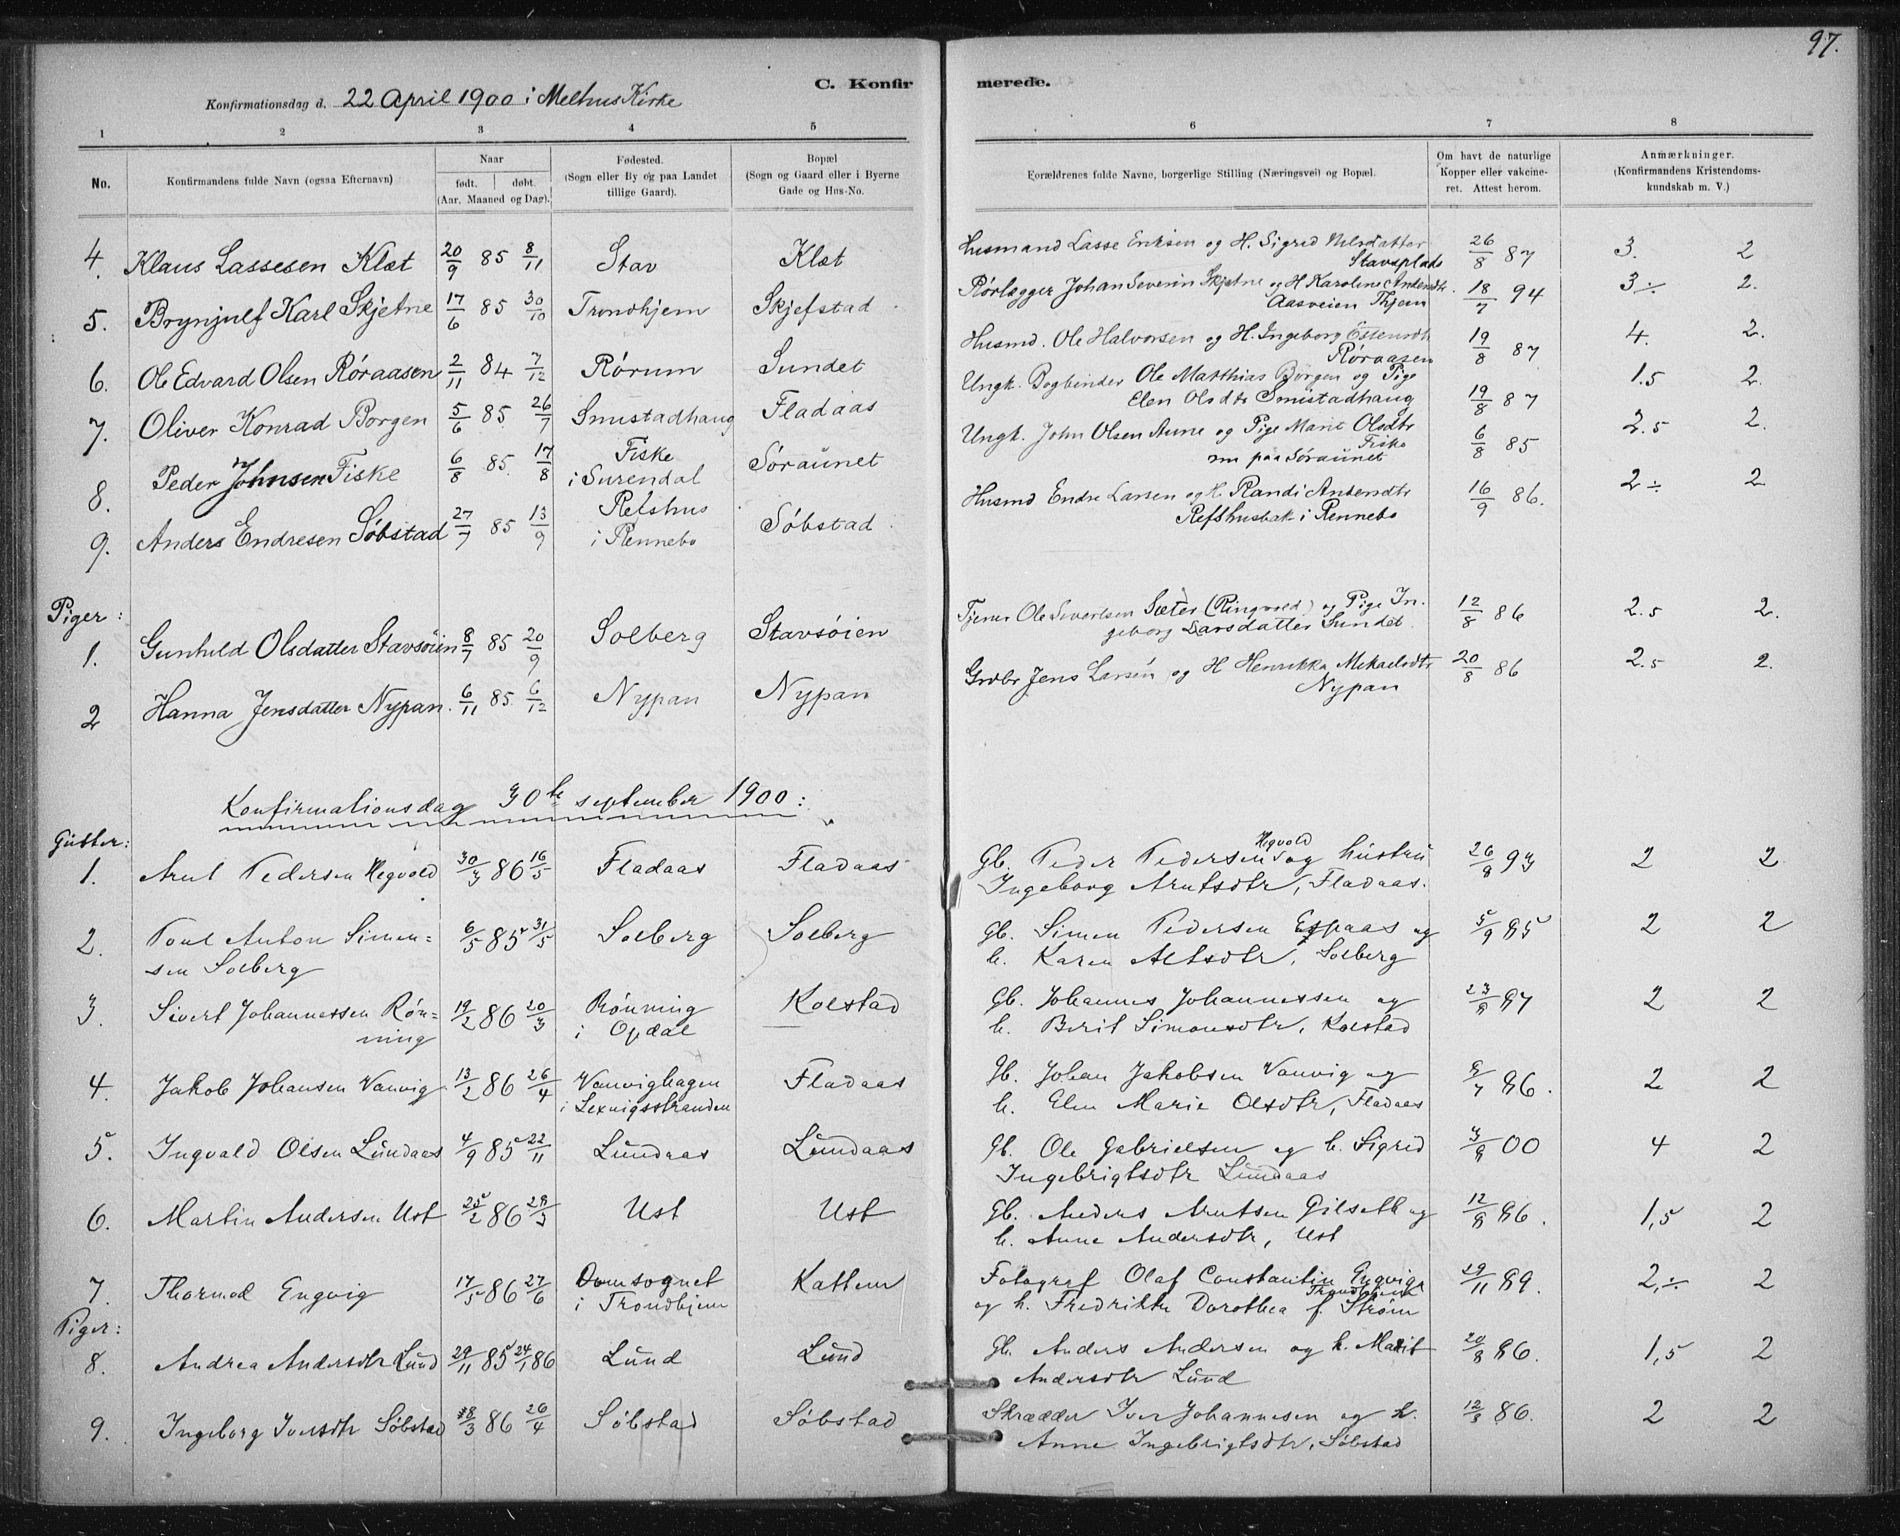 97.
C. Konfirmerede.
Konfirmationsdag d. 22 April 1900 i Melhus Kirke
1 2 3 4 5 6 7 8
No.
Konfirmandens fulde Navn (ogsaa Efternavn)
Naar
født. | døbt.
(Aar, Maaned og Dag).
Fødested.
(Sogn eller By og paa Landet
tillige Gaard).
Bopæl
(Sogn og Gaard eller i Byerne
Gade og Hus-No.
Forældrenes fulde Navne, borgerlige Stilling (Næringsvei) og Bopæl.
Om havt de naturlige
Kopper eller vakcine-
ret. Attest herom.
Anmærkninger.
(Konfirmandens Kristendoms-
kundskab m. V.)
4. Klaus Lassesen Klæt 20/9 85 8/11 Stav Klæt Husmand Lasse Eriksen og H. Sigrid Nilsdatter 26/8 87 3. 2
Stavsplads
5. Brynjulf Karl Skjetne 17/6 85 30/10 Trondhjem Skjefstad Rørlægger Johan Severin Skjetne og H Karoline Andersdtr. 18/7 94 3 ÷ 2.
Aasveien Thjem
6. Ole Edvard Olsen Røraasen 2/11 84 7/12 Rørum Sundet Husmd. Ole Halvorsen og H. Ingeborg Estensdtr 19/8 87 4. 2.
Røraasen
7. Oliver Konrad Borgen 5/6 85 26/7 Smustadhaug Fladaas Ungk. Bogbinder Ole Matthias Borgen og Pige 19/8 87 1.5 2.
Elen Olsdtr Smistadhaug
8. Peder Johnsen Fiske 6/8 85. 17/8 Fiske Søraunet Ungk. John Olsen Aune og Pige Marit Olsdtr 6/8 85 2.5 2.
i Surendal Fiske
nu paa Søraunet
9. Anders Endresen Søbstad 27/7 85 13/9 Refshus Søbstad Husmd Endre Larsen og H. Randi Andersdtr 16/9 86. 2 ÷ 2
i Rennebo Refshusbak i Rennebo
Piger:
1. Gunhild Olsdatter Stavsøien 8/7 85 20/9 Solberg Stavsøien Tjener Ole Sivertsen Sæter (Ringvold) og Pige In- 12/8 86 2.5 2.
geborg Larsdatter Sundet.
2 Hanna Jensdatter Nypan. 6/11 85. 6/12 Nypan Nypan Grdbr Jens Larsen og H Henrikka Mikaelsdtr 20/8 86 2.5 2.
Nypan
Konfirmationsdag 30te september 1900:
Gutter:
1. Arnt Pedersen Hegvold 30/3 86 16/5 Fladaas Fladaas Gb. Peder Pedersen Hegvold og hustru 26/8 93 2 2
Ingeborg Arntsdtr, Fladaas.
2. Poul Anton Simon- 6/5 85 31/5 Solberg Solberg Gb. Simen Pedersen Espaas og 5/9 85 2 2
sen Solberg h. Karen Altsdtr, Solberg
3. Sivert Johannessen Røn- 19/2 86 20/3 Rønning Kolstad Gb. Johannes Johannessen og 23/8 87 2 2
ning i Opdal h. Berit Simonsdtr, Kolstad
4. Jakob Johansen Vanvig 13/2 86 26/4 Vanvighagen Fladaas Gb. Johan Jakobsen Vanvig og 8/7 86. 2 2
i Lexvigsstranden h. Elen Marie Olsdtr, Fladaas
5. Ingvald Olsen Lundaas 4/9 85 22/11 Lundaas Lundaas Gb. Ole Gabrielsen og h. Sigrid 3/8 00 4 2
Ingebrigtsdtr Lundaas
6. Martin Andersen Ust 25/2 86 28/3 Ust Ust Gb. Anders Arntsen Gilseth og 12/8 86. 1,5 2
h. Anne Andersdtr, Ust
7. Thormod Engvig 17/5 86 27/6 Domsognet Kattem Fotograf Olaf Constantin Engvig 29/11 89. 2,÷ 2
i Trondhjem Trondhjem
og h. Fredrikke Dorothea f. Strøm
Piger:
8. Andrea Andersdtr Lund 29/11 85 24/1 86 Lund Lund Gb. Anders Andersen og h. Marit 20/8 86. 1,5 2
Andersdtr Lund
9. Ingeborg Iversdtr Søbstad 18/3 86 26/4 Søbstad Søbstad Skrædder Iver Johannesen og h. 12/8 86. 2 2
Anne Ingebrigtsdtr, Søbstad